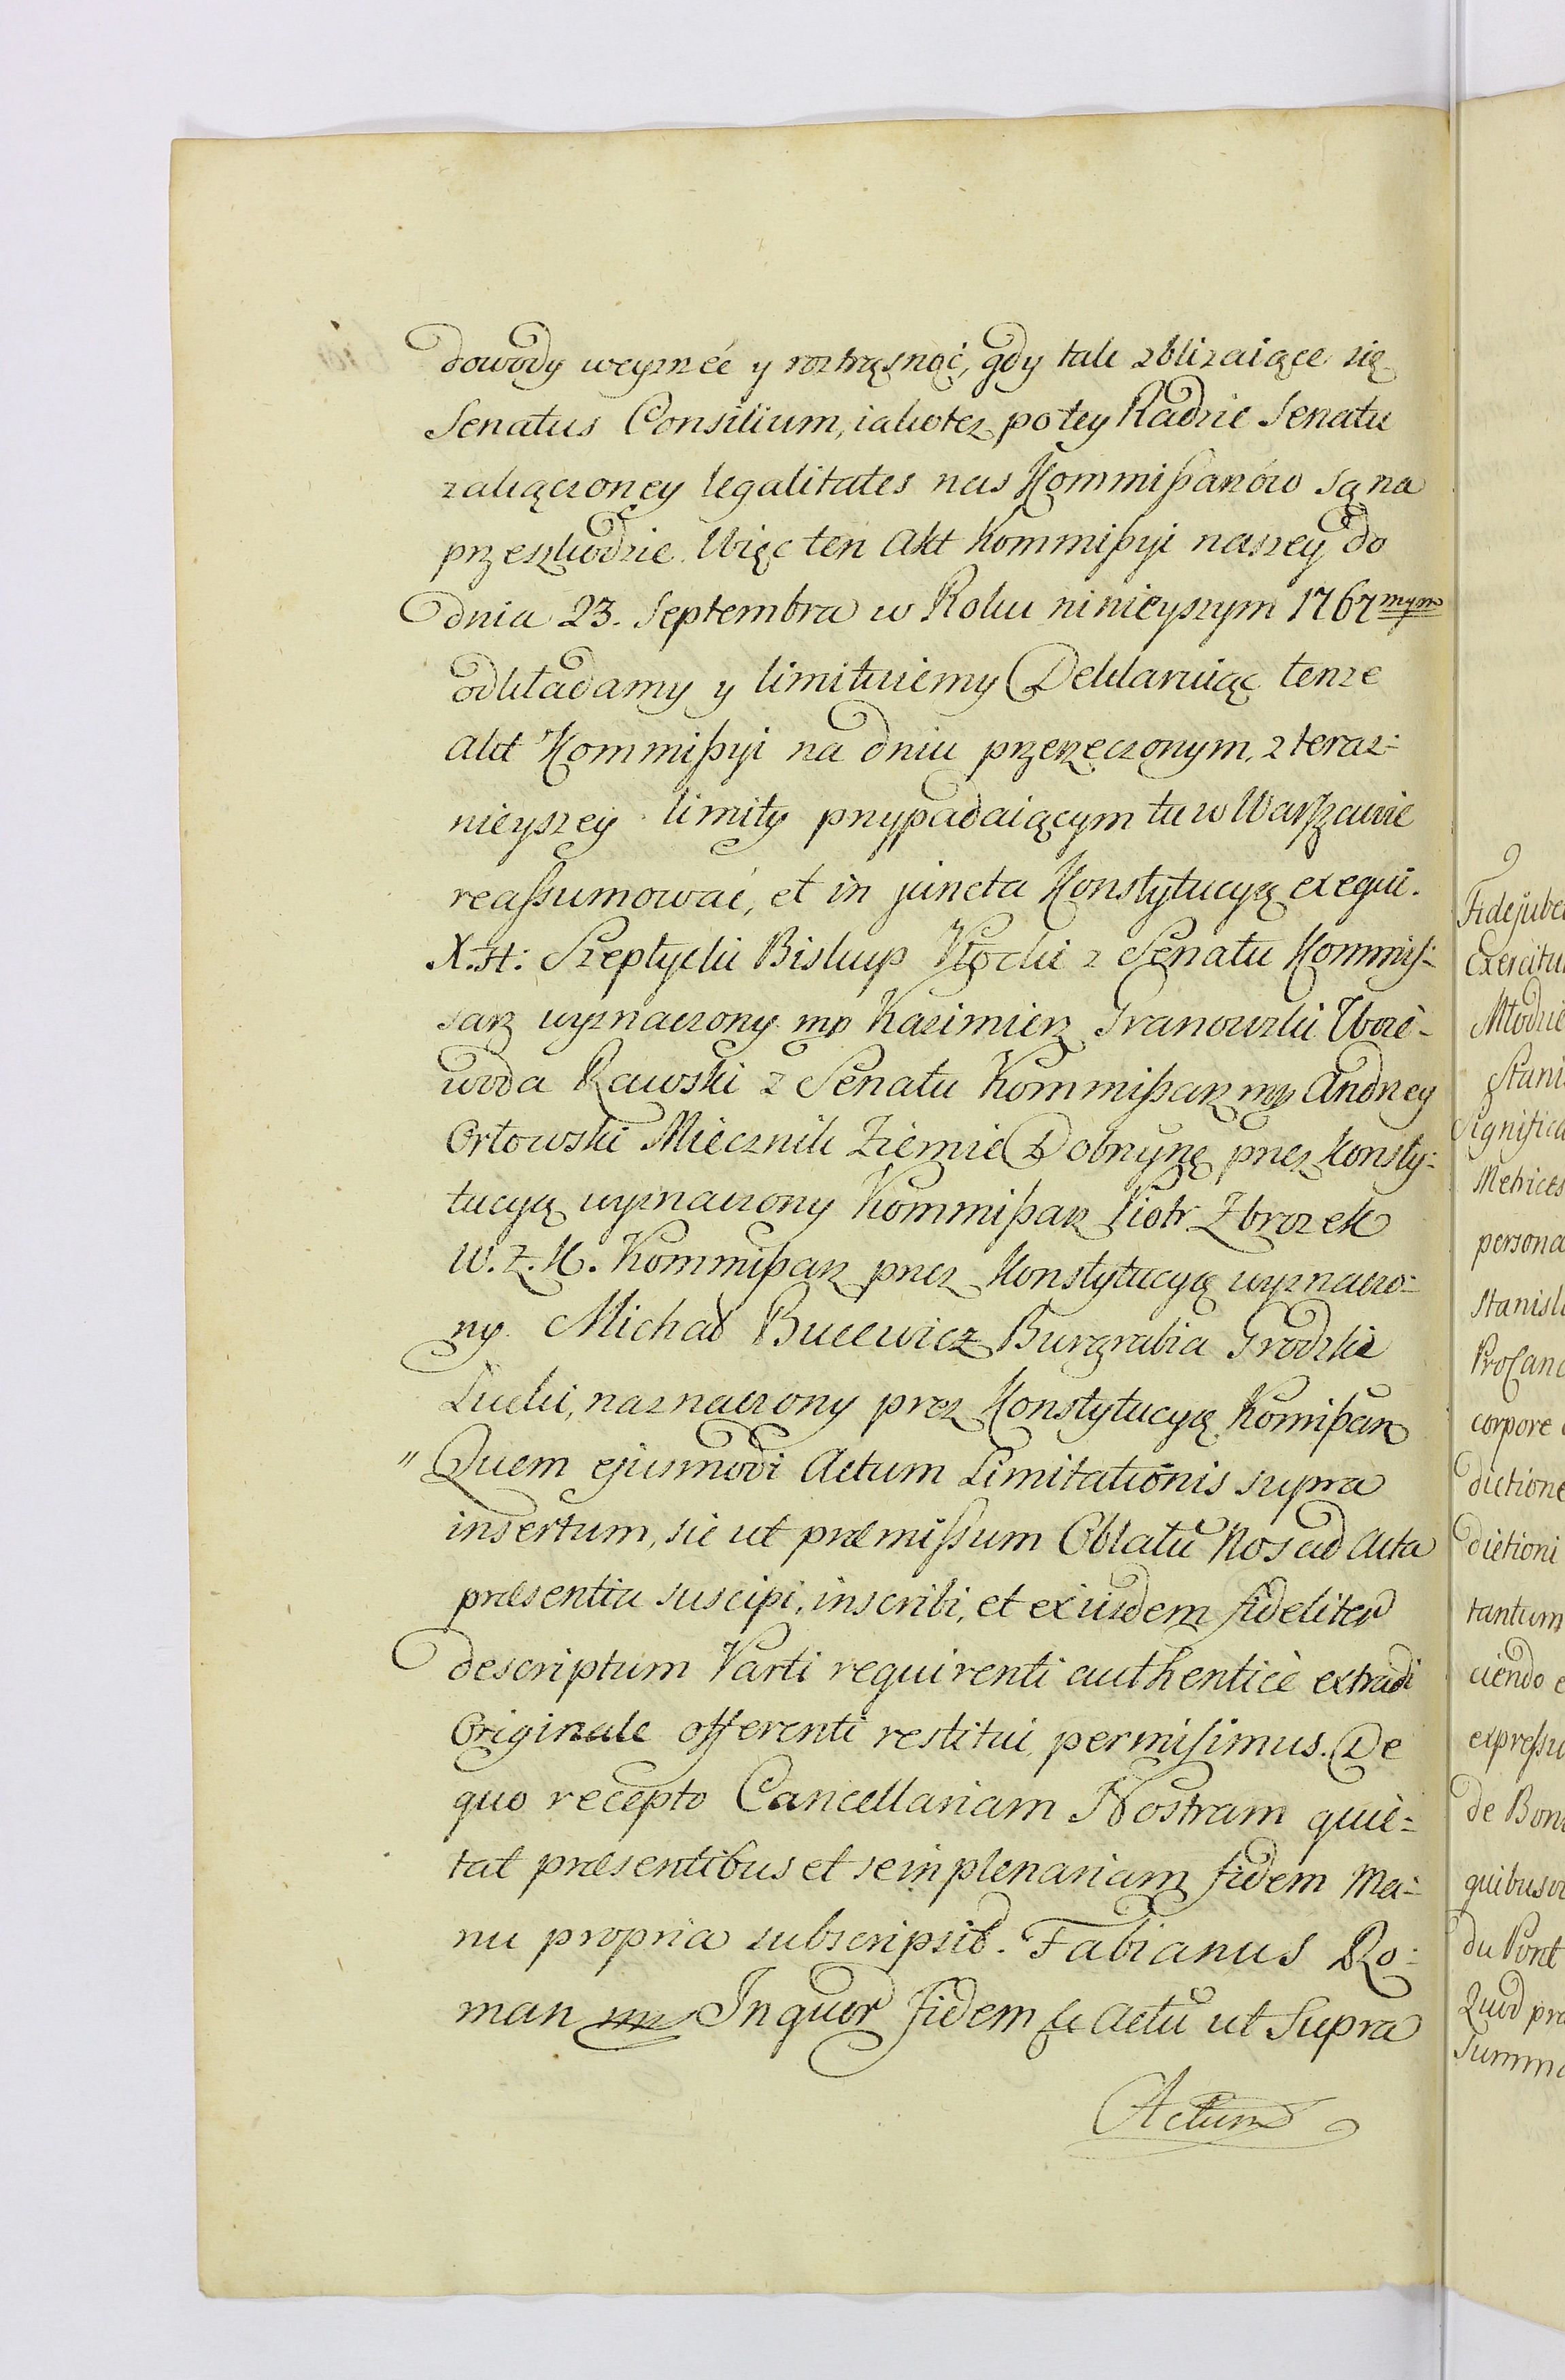 dowody weyzrzéć y roztrząsnąć, gdy tak zblizaiące się
Senatus Consilium, iakotez potey Radzie Senatu
zakączoney legalitates nas Kommißarzów są na
przeszkodzie. Więc ten Akt Kommißyi naszey do
dnia 23. Septembra w Roku ninieyszym 1767mym
odkładamy y limituiemy Deklaruiąc tenze
Akt Kommißyi na dniu przerzęczonym, z teraz=
nieyszey limity przypadaiącym tu w Warszawie
reassumować, et in juncta Konstytucyą exequi.
X. H: Szeptycki Biskup Płocki z Senatu Kommis=
sarz wyznaczony mp Kazimierz Granowski Woie=
woda Rawski z Senatu Kommißarz mp Andrzey
Orłowski Miecznik Ziemie Dobrzynę przez Konsty=
tucyą wyznaczony Kommißarz Piotr Zbrozek
W. Z. K. Kommißarz przez Konstytucyą wyznaczo=
ny. Michał Bucewicz Burgrabia Grodzki
Łucki, naznaczony przez Konstytucyą Komißarz
" Quem ejusmodi Actum Limitationis supra
insertum, sic ut præmissum Oblatũ Nos ad Acta
præsentia suscipi, inscribi, et exiisdem fideliter
descriptum Parti requirenti authenticè extradi
Originale offerenti restitui, permisimus. De
quo recepto Cancellariam Nostram quie=
tat præsentibus et se in plenariam fidem Ma=
nu propria subscripsit. Fabianus Ro=
man mp In quor fidem &c Actũ ut Supra
Actum
Fidejube
Exercitu
Młodzie
Stani
Significa
Metrices
persona
Stanisla
ProCanc
corpore
dictione
dictioni
tantum
ciendo e
expressu
de Bon
quibusv
du Pont
Quod pra
Summa